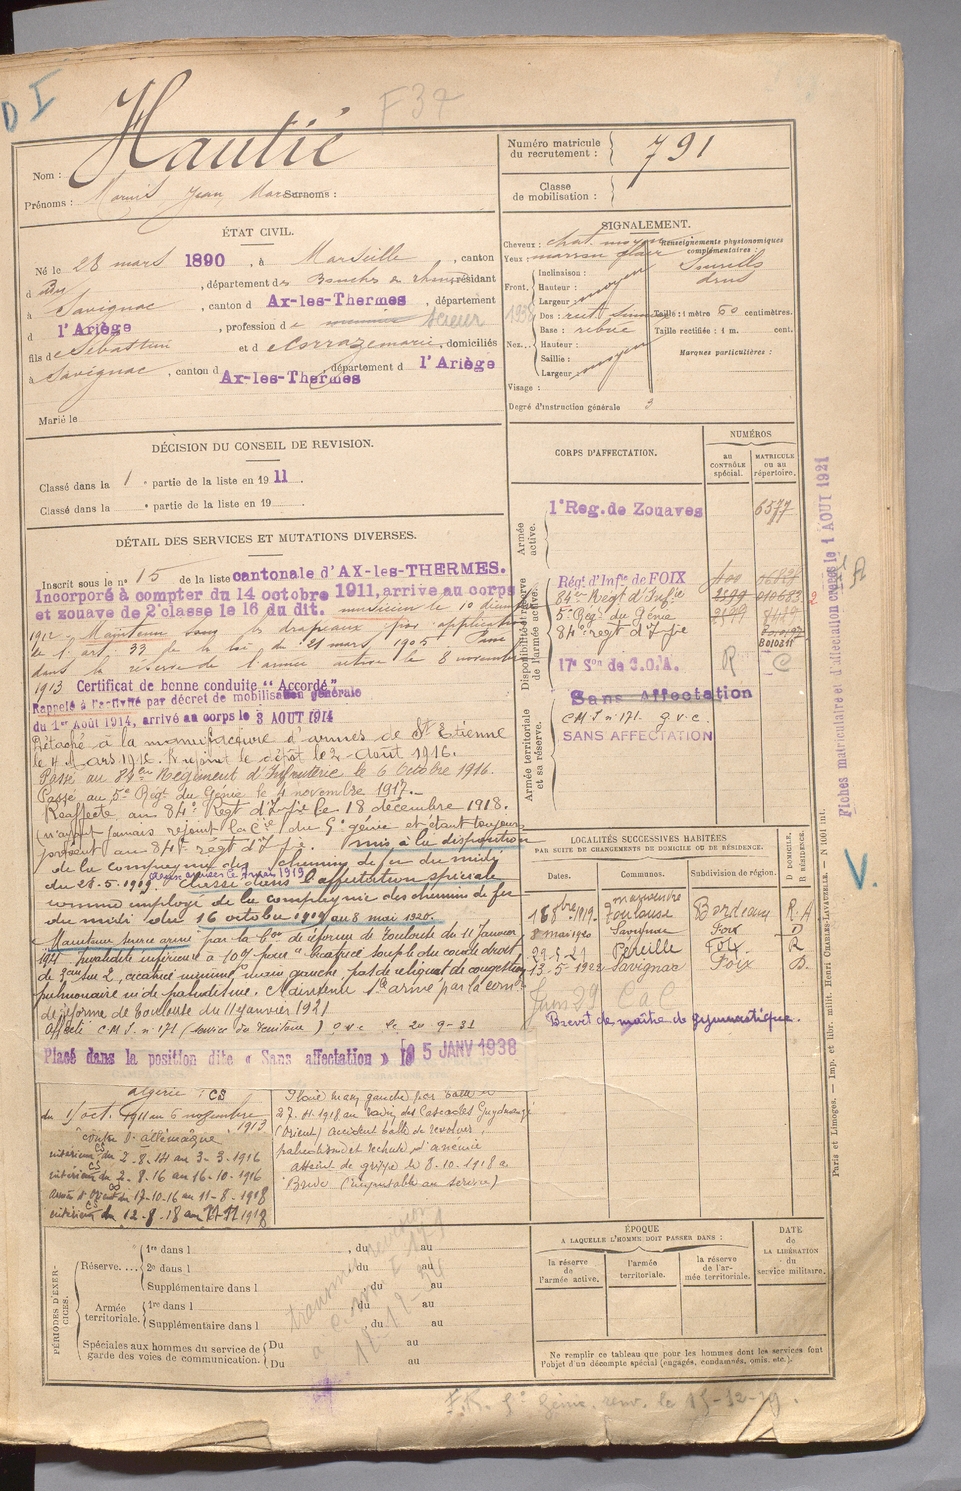 D I
F 37
Nom : Hautié
Prénoms : Jean, Surnoms :
Numéro matricule du recrutement : 791
Classe de mobilisation :
ÉTAT CIVIL.
Né le 28 mars 1890, à Marseille, canton
d, département des Bouches du rhône, résidant
à Savignac, canton d Ax-les-Thermes, département
d l'Ariège, profession de scieur
fils de Sébastien et d, domiciliés
à Savignac, canton d Ax-les-Thermes, département d l'Ariège
Marié le
SIGNALEMENT.
Cheveux : chat. moyen
Yeux : marron clair
Renseignements physionomiques complémentaires :
Sourcils
drus
Front. Inclinaison :
Hauteur : moyen
Largeur :
Nez. Dos : rect.
Base :
Hauteur :
Saillie : moyen
Largeur :
Taille : 1 mètre 60 centimètres.
Taille rectifiée : 1 m. cent.
Marques particulières :
Visage :
Degré d'instruction générale 3
DÉCISION DU CONSEIL DE REVISION.
Classé dans la 1e partie de la liste en 1911.
Classé dans la e partie de la liste en 19
CORPS D'AFFECTATION.
NUMÉROS
au CONTRÔLE spécial.
MATRICULE ou au répertoire.
Armée active.
1e Reg. de Zouaves 6577
Disponibilité et réserve de l'armée active.
Régt d'Infie de FOIX
84e Régt d'Infie
5e Régt du Génie
84e regt d'Infie
17e Son de C.O.A. R C
Sans Affectation
Armée territoriale et sa réserve.
C M I. n° 171. G.V.C.
SANS AFFECTATION
Fiches matriculaire et d'affectation le 1 AOUT 1921
DÉTAIL DES SERVICES ET MUTATIONS DIVERSES.
Inscrit sous le n° 15 de la liste cantonale d'AX-les-THERMES.
Incorporé à compter du 14 octobre 1911, arrive au corps
et zouave de 2e classe le 16 du dit. musicien le 10 décembre
1912. Maintenu sous les drapeaux par application
de l'art. 33 de la loi du 21 mars 1905. Passé
dans la réserve de l'armée active le 8 novembre
1913 Certificat de bonne conduite "Accordé"
Rappelé à l'activité par décret de mobilisation générale
du 1er Août 1914, arrivé au corps le 3 AOUT 1914
Détaché à la manufacture d'armes de St Etienne
le 4 Mars 1916. Rejoint le dépôt le 2 Août 1916.
Passé au 84e Régiment d'Infanterie le 6 Octobre 1916.
Passé au 5e Régt du Génie le 1 novembre 1917.
Réaffecté au 84e Régt d'Infie le 18 décembre 1918.
(n'ayant jamais rejoint la Cie du 5e génie et étant toujours
présent au 84e regt d'Ifie. mis à la disposition
de la compagnie des chemins de fer du midi
du 28-5-1919. Classé dans l'affectation spéciale
comme employé de la compagnie des chemins de fer
du midi du 16 octobre 1919 au 8 mai 1920.
Maintenu service armé par la Con de réforme de Toulouse du 11 Janvier
1921 Invalidité inférieure à 10% pour "cicatrice souple du coude droit
de 3cm sur 2, cicatrice minime main gauche, pas de reliquat de congestion
pulmonaire ni de paludisme. Maintenu Sce armé par la comon
de réforme de Toulouse du 11 janvier 1921
Affecté C.M.I. n° 171 (service du Territoire) G.V.C. le 20-9-31
Placé dans la position dite « Sans affectation » le 5 JANV 1938
LOCALITÉS SUCCESSIVES HABITÉES
PAR SUITE DE CHANGEMENTS DE DOMICILE OU DE RÉSIDENCE.
Dates. Communes. Subdivision de région. D DOMICILE. R RÉSIDENCE.
16 8bre 1919. Toulouse Bordeaux R.A
8 mai 1920 Savignac Foix D
29-5-21 Péreille Foix R
13-5-1922 Savignac Foix D.
Juin 29 C a C
Brevet de maître de gymnastique.
V.
Algérie CS
du 15 oct. 1911 au 6 novembre 1913
contre l'allemagne
intérieur CS du 2-8-14 au 3-3-1916
intérieur CS du 2-8-16 au 16-10-1916
armée d'Orient du 17-10-16 au 11-8-1918
intérieur CS du 12-8-18 au 1918
Plaie main gauche par balle
27.11.1918 au ravin des Cascades
(Orient) accident balle de revolver,
paludisme et rechute d'anémie
atteint de grippe le 8-10-1918 à
(imputable au service)
PÉRIODES D'EXERCICES.
Réserve.... 1re dans l, du au
2e dans l, du au
Supplémentaire dans l, du au
Armée territoriale. 1re dans l du au
Supplémentaire dans l du au
Spéciales aux hommes du service de garde des voies de communication. Du au
Du au
ÉPOQUE
A LAQUELLE L'HOMME DOIT PASSER DANS :
la réserve de l'armée active.
l'armée territoriale.
la réserve de l'armée territoriale.
DATE de LA LIBÉRATION du service militaire.
Ne remplir ce tableau que pour les hommes dont les services font l'objet d'un décompte spécial (engagés, condamnés, omis, etc.).
Paris et Limoges. — Imp. et libr. milit. Henri CHARLES-LAVAUZELLE. — N° 1001 int.
5e Génie. renv. le 15-12-19.